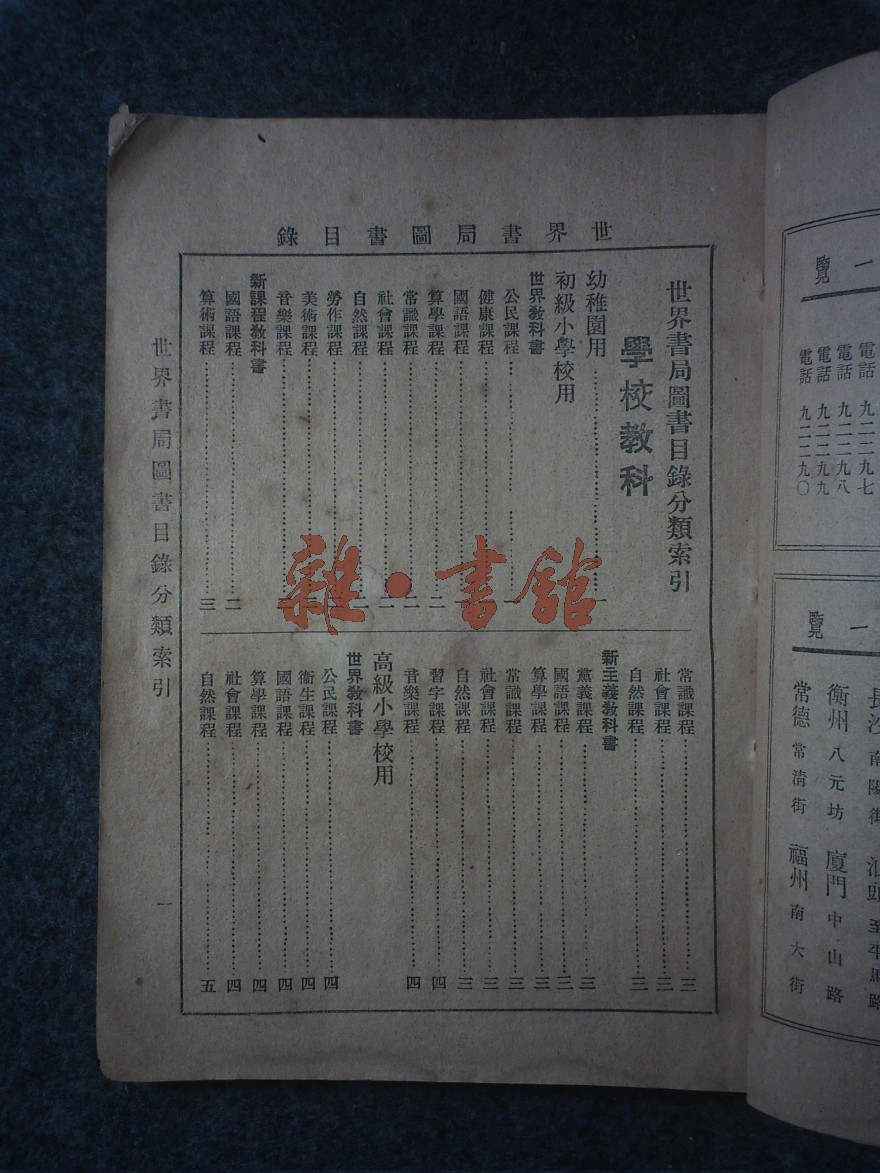 世界書局圖書目錄
世界書局圖書目錄分類索引
學校教科
幼稚園用……一
初級小學校用
世界教科書
公民課程……一
健康課程
國語課程
算學課程……二
常識課程……二
社會課程……二
自然課程
勞作課程
美術課程
音樂課程
新課程教科書
國語課程……二
算術課程……三
常識課程……三
社會課程……三
自然課程……三
新主義教科書
黨義課程……三
國語課程……三
算學課程……三
常識課程……三
社會課程……三
自然課程……三
習字課程……四
音樂課程……四
高級小學校用
世界教科書
公民課程……四
衞生課程……四
國語課程……四
算學課程……四
社會課程……四
自然課程……五
世界書局圖書目錄分類索引
一
雜·書館
一覽
電話 九二二九七
電話 九二二九八
電話 九二二九九
電話 九二二九〇
一覽
長沙 南陽街 汕頭 至平馬路
衡州 八元坊 廈門 中山路
常德 常清街 福州 南大街